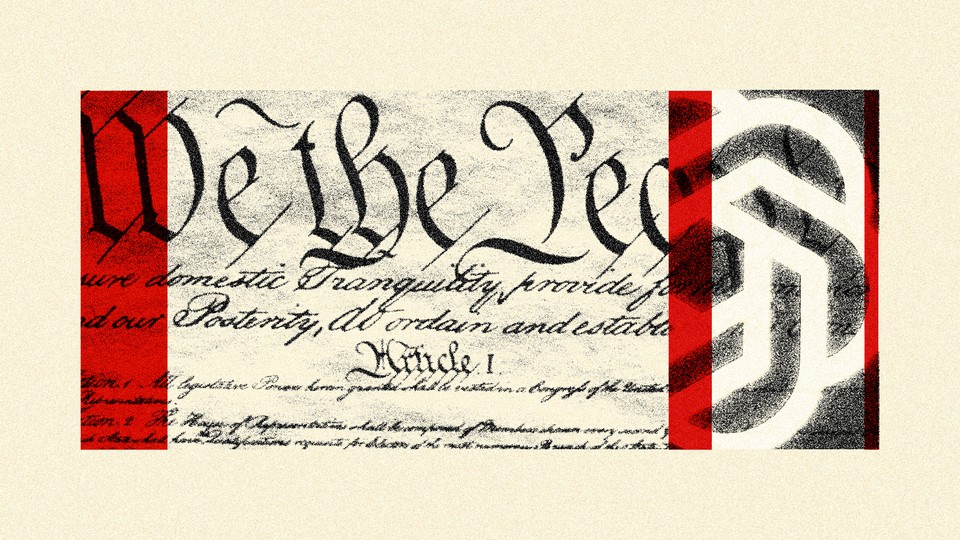 We the Peo
sure domestic Tranquility, provide fo
nd our Posterity, do ordain and establi
Article I.
ction. 1 All legislative Powers herein granted shall be vested in a Congress of the United
Representatives
ction. 2 The House of Representatives shall be composed of Members chosen every second
State shall have Qualifications requisite for Electors of the most numerous Branch of the State